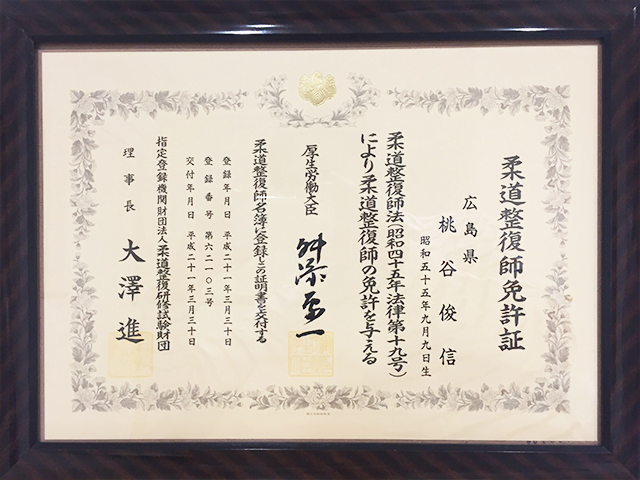 柔道整復師免許証
広島県
桃谷俊信
昭和五十五年九月九日生
柔道整復師法(昭和四十五年法律第十九号)
により柔道整復師の免許を与える
厚生労働大臣 舛添要一
柔道整復師名簿に登録しこの証明書を交付する
登録年月日 平成二十一年三月三十日
登録番号 第六二一〇三号
交付年月日 平成二十一年三月三十日
指定登録機関財団法人柔道整復研修試験財団
理事長 大澤進